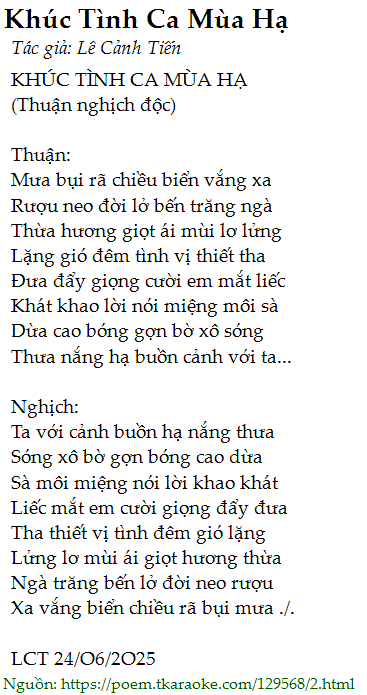 Khúc Tình Ca Mùa Hạ
Tác giả: Lê Cảnh Tiến
KHÚC TÌNH CA MÙA HẠ
(Thuận nghịch độc)
Thuận:
Mưa bụi rã chiều biển vắng xa
Rượu neo đời lở bến trăng ngà
Thừa hương giọt ái mùi lơ lửng
Lặng gió đêm tình vị thiết tha
Đưa đẩy giọng cười em mắt liếc
Khát khao lời nói miệng môi sà
Dừa cao bóng gợn bờ xô sóng
Thưa nắng hạ buồn cảnh với ta...
Nghịch:
Ta với cảnh buồn hạ nắng thưa
Sóng xô bờ gợn bóng cao dừa
Sà môi miệng nói lời khao khát
Liếc mắt em cười giọng đẩy đưa
Tha thiết vị tình đêm gió lặng
Lửng lơ mùi ái giọt hương thừa
Ngà trăng bến lở đời neo rượu
Xa vắng biển chiều rã bụi mưa ./.
LCT 24/O6/2O25
Nguồn: https://poem.tkaraoke.com/129568/2.html